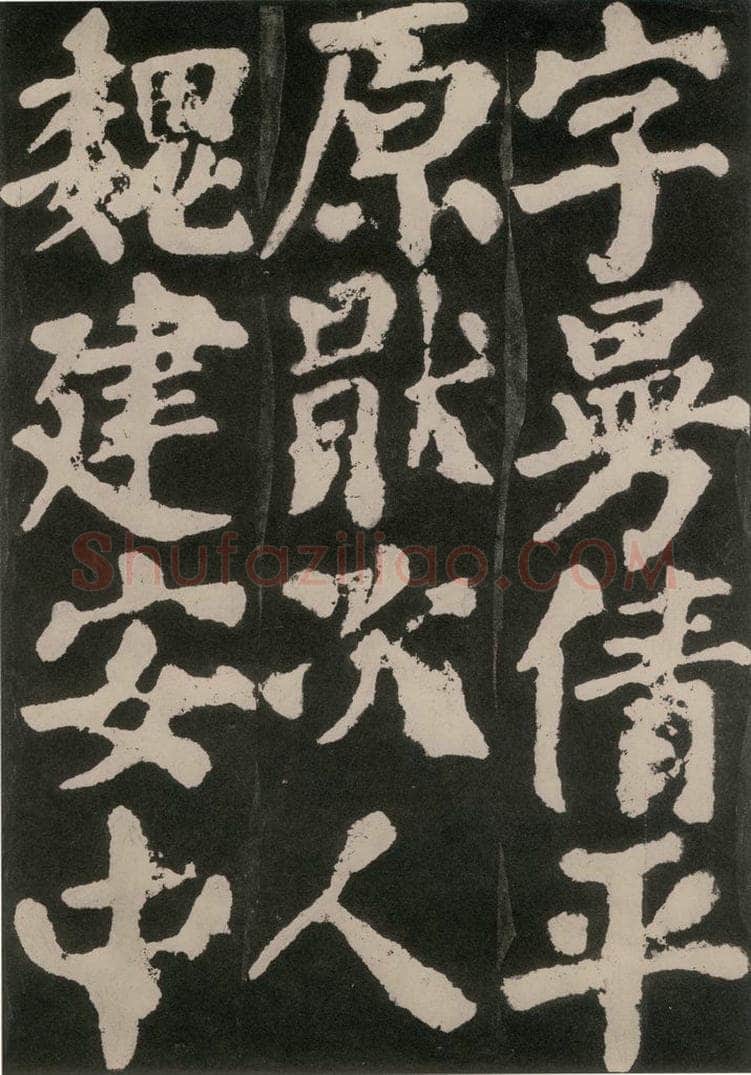 字曼倩平
原猒次人
魏建安中
Shufaziliao.COM